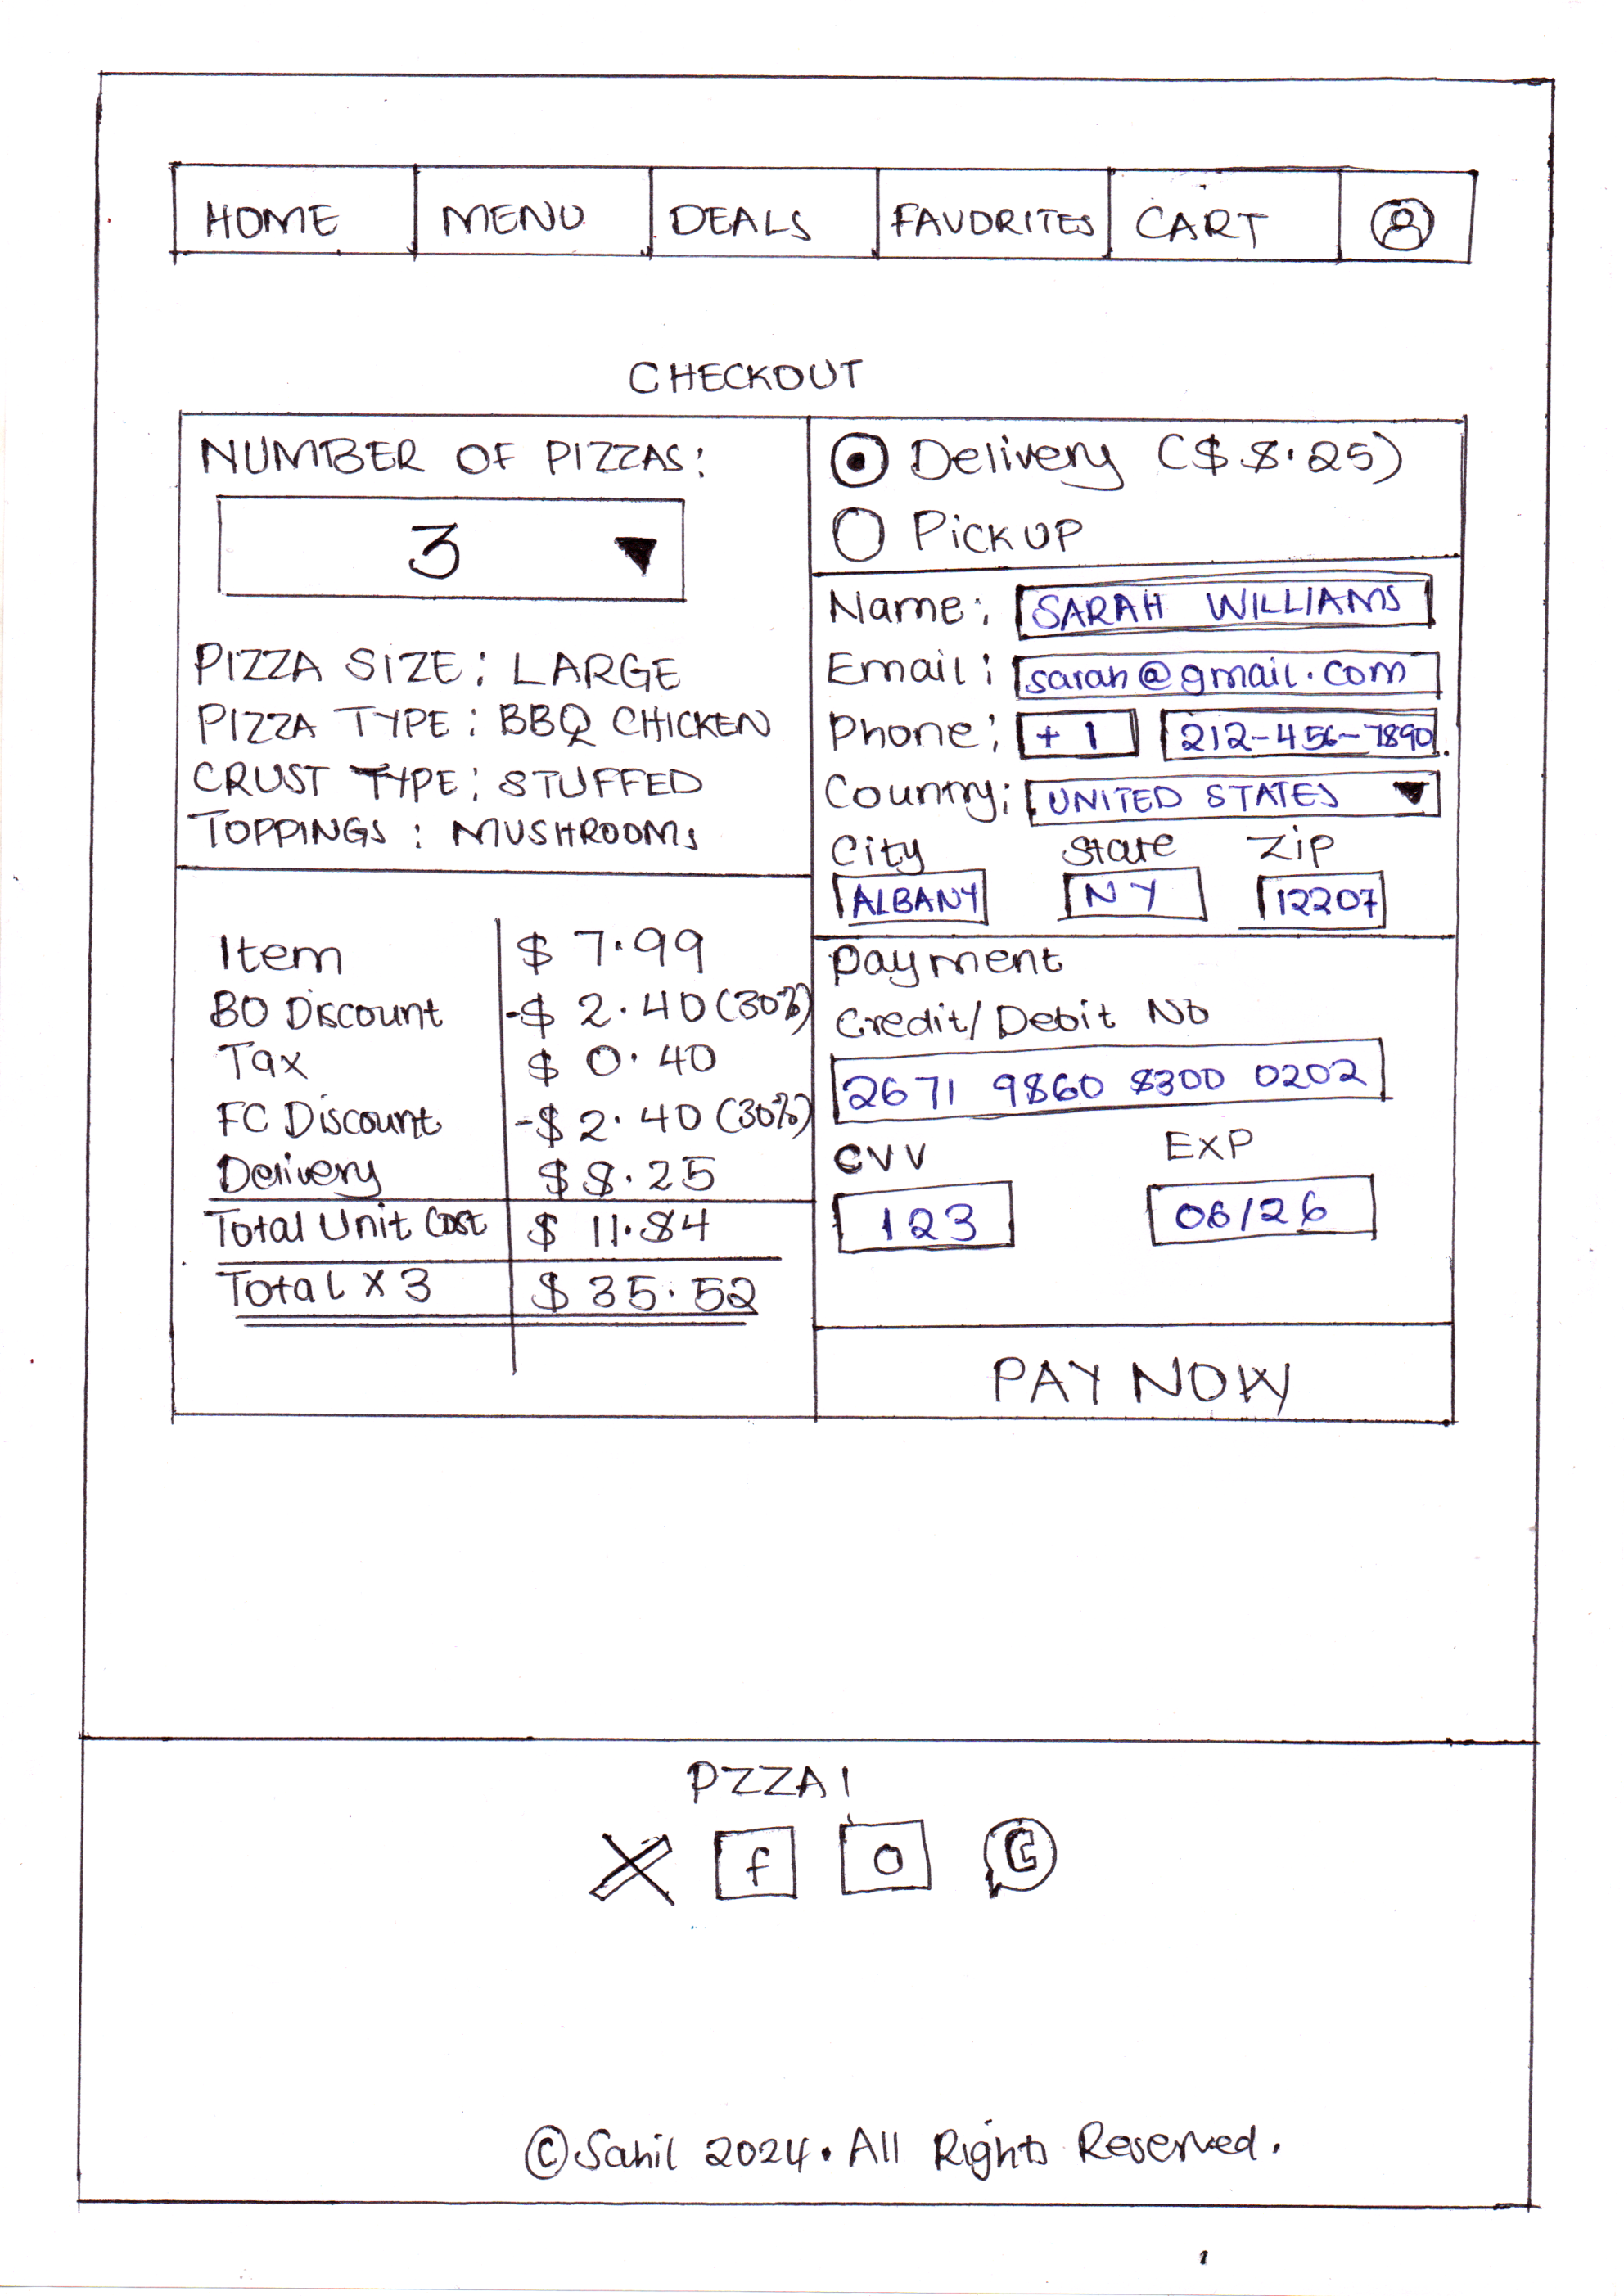 HOME MENU DEALS FAVORITES CART
CHECKOUT
NUMBER OF PIZZAS:
3
PIZZA SIZE: LARGE
PIZZA TYPE: BBQ CHICKEN
CRUST TYPE: STUFFED
TOPPINGS: MUSHROOMS
Item $ 7.99
BO Discount -$ 2.40 (30%)
Tax $ 0.40
FC Discount -$ 2.40 (30%)
Delivery $ 8.25
Total Unit Cost $ 11.84
Total X 3 $ 35.52
Delivery ($ 8.25)
Pick UP
Name: SARAH WILLIAMS
Email: sarah@gmail.com
Phone: +1 212-456-7890
Country: UNITED STATES
City State Zip
ALBANY NY 12207
Payment
Credit/Debit No
2671 9860 8300 0202
CVV EXP
123 06/26
PAY NOW
PZZA!
f
© Sahil 2024. All Rights Reserved.